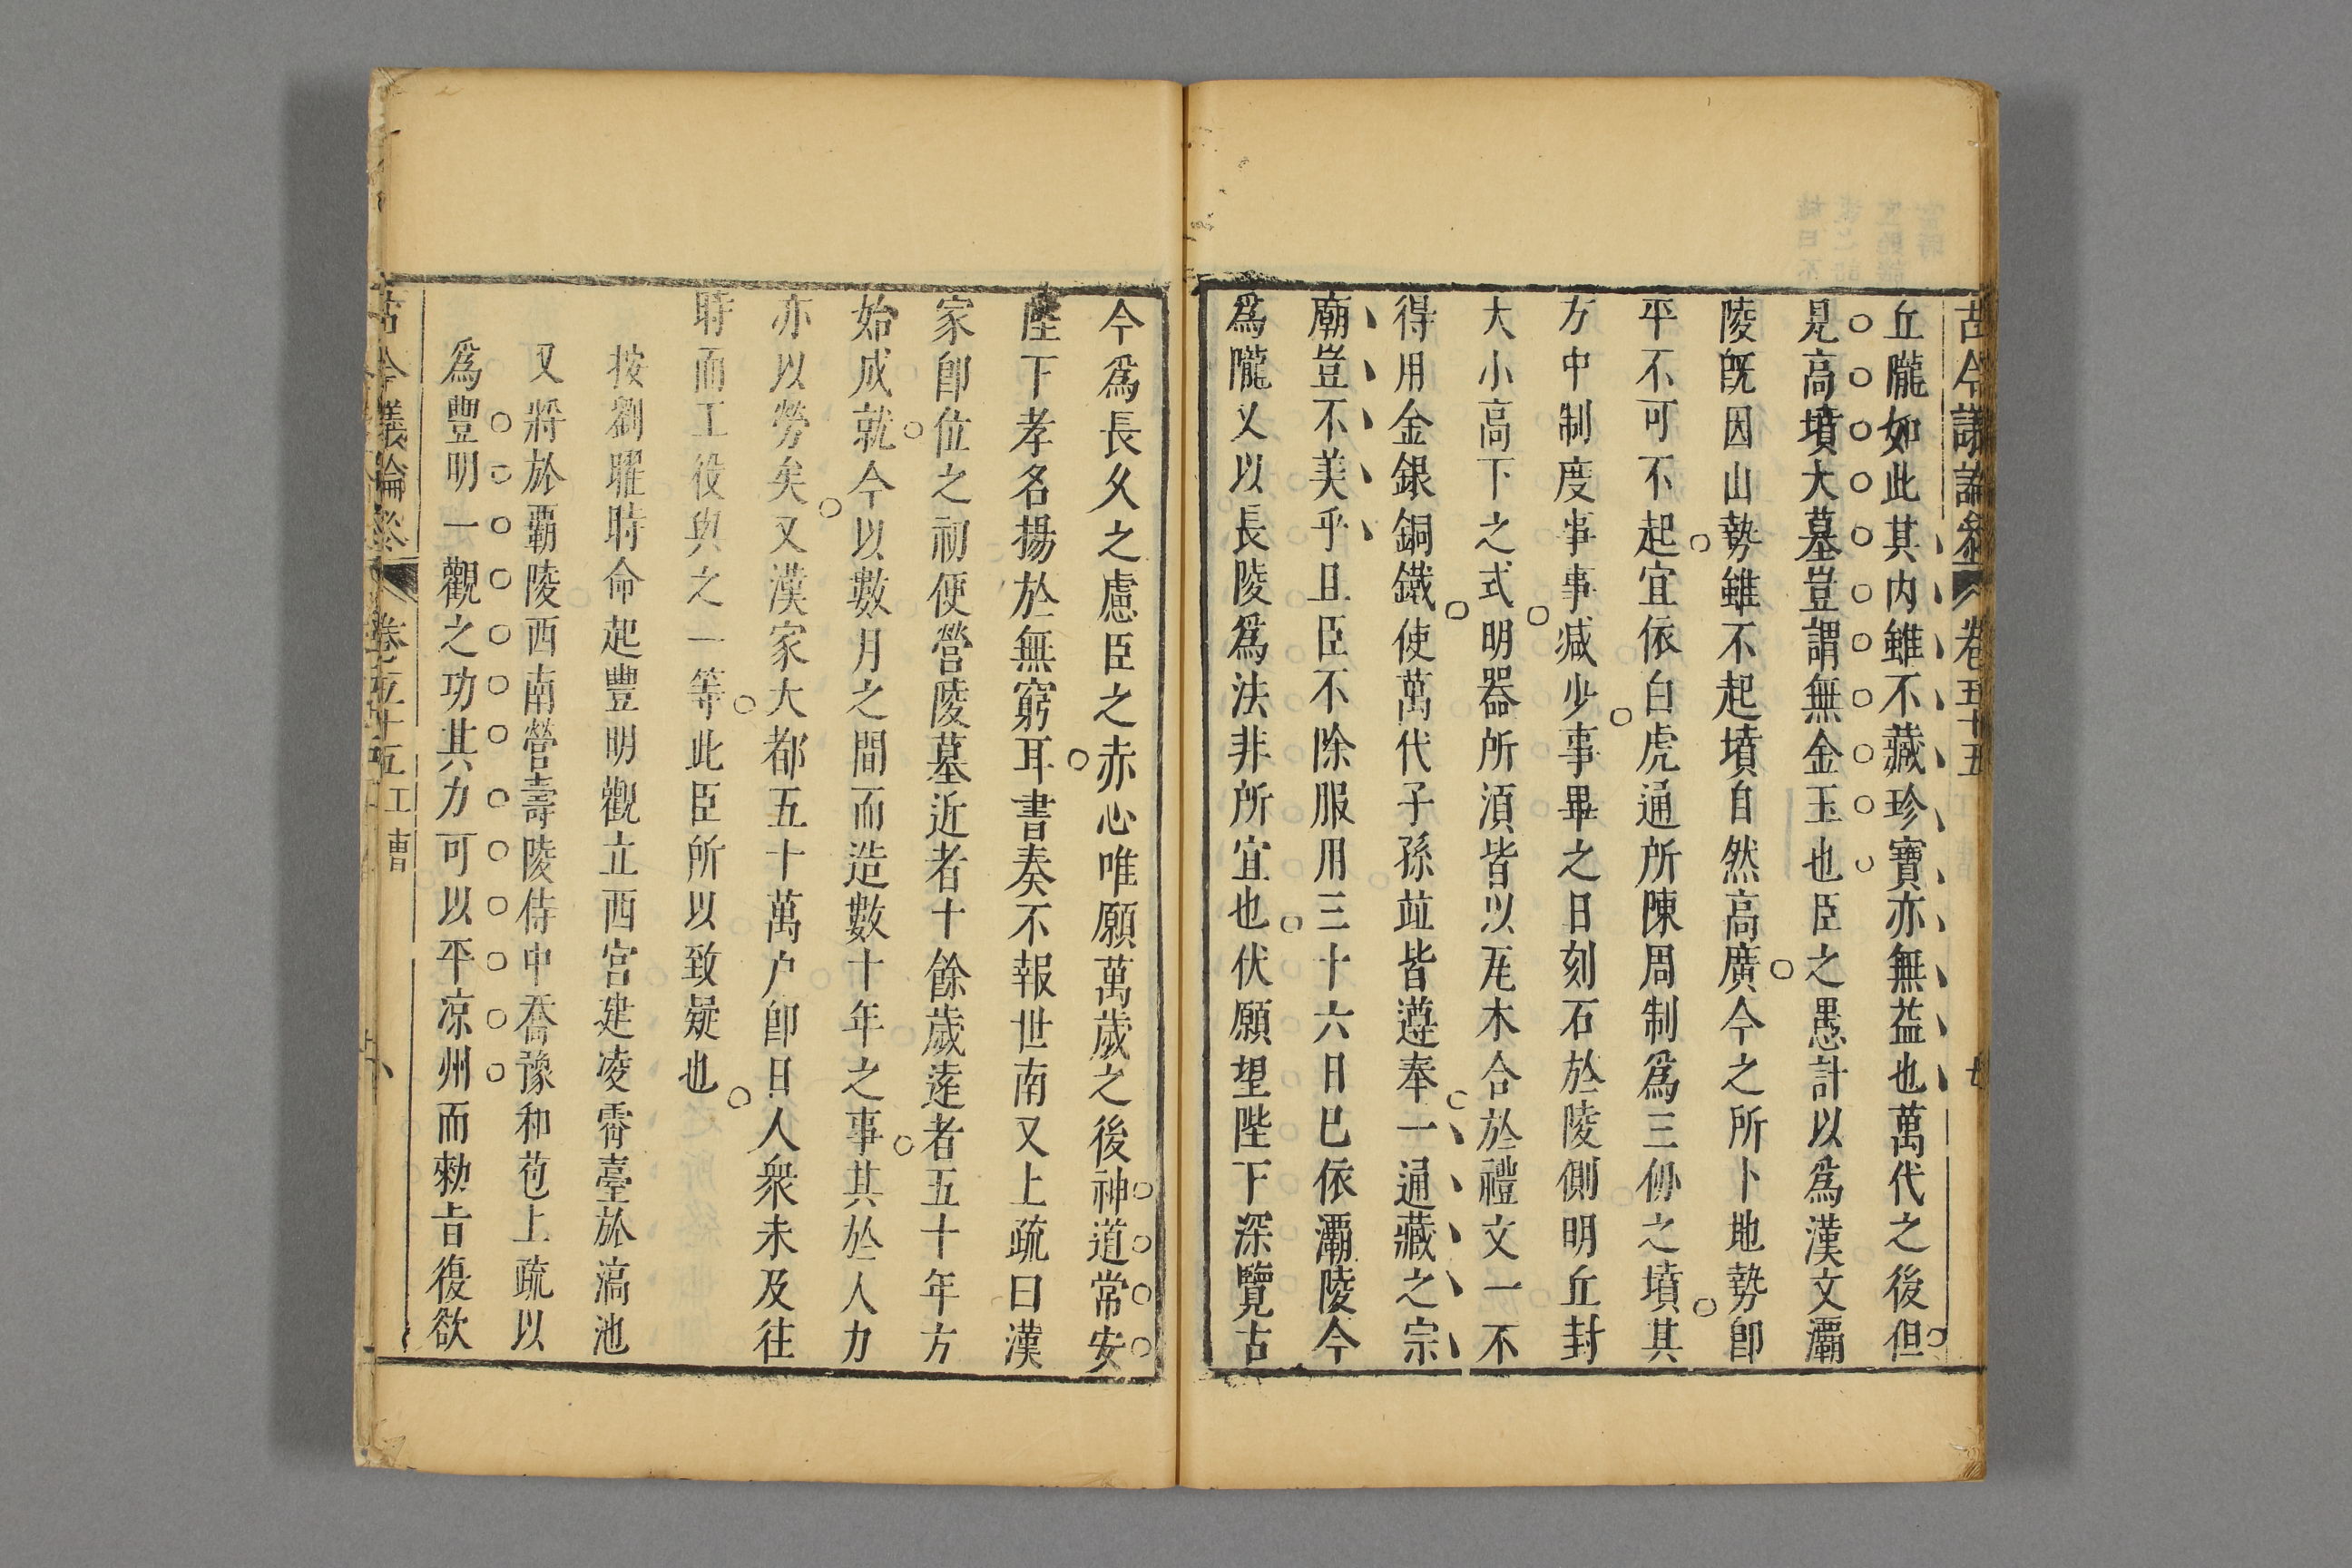 古今議論參 卷五十五 七
丘隴如此其内雖不藏珍寶亦無益也萬代之後但
見高墳大墓豈謂無金玉也臣之愚計以爲漢文灞
陵旣因山勢雖不起墳自然高廣今之所卜地勢卽
平不可不起宜依白虎通所陳周制爲三仞之墳其
方中制度事事减少事畢之日刻石於陵側明丘封
大小高下之式明器所湏皆以瓦木合於禮文一不
得用金銀銅鐵使萬代子孫竝皆遵奉一通藏之宗
廟豈不美乎且臣不除服用三十六日已依灞陵今
爲隴又以長陵爲法非所宜也伏願望陛下深覽古
今爲長久之慮臣之赤心唯願萬歲之後神道常安
陛下孝名揚於無窮耳書奏不報世南又上疏曰漢
家卽位之初便營陵墓近者十餘歲遠者五十年方
始成就今以數月之間而造數十年之事其於人力
亦以勞矣又漢家大都五十萬户卽日人衆未及往
時而工役與之一等此臣所以致疑也
按劉曜時命起豐明觀立西宫建凌霄臺於滈池
又將於霸陵西南營壽陵侍中喬豫和苞上疏以
爲豐明一觀之功其力可以平凉州而勑旨復欲
古今議論參 卷之五十五 工曹